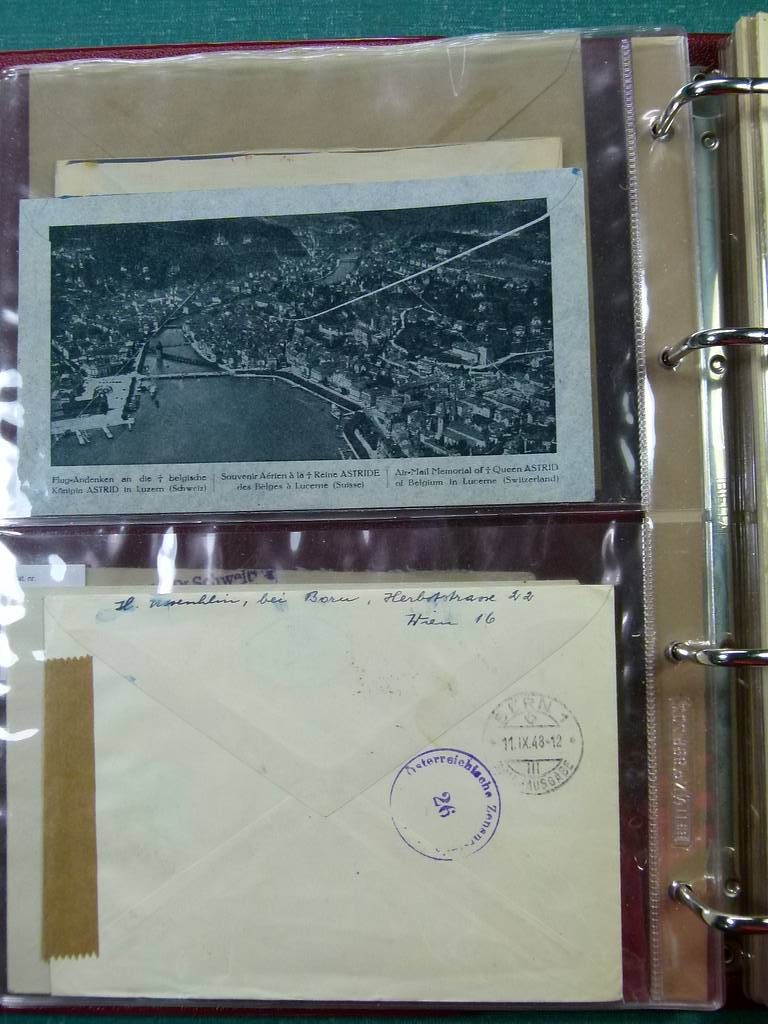 Flug-Andenken an die † belgische
Königin ASTRID in Luzern (Schweiz)
Souvenir Aérien à la † Reine ASTRIDE
des Belges à Lucerne (Suisse)
Air-Mail Memorial of † Queen ASTRID
of Belgium in Lucerne (Switzerland)
at. nr.
bei Born, Herbststrasse 22
Wien 16
BERN 1
11.IX.48-12
III
Österreichische
26